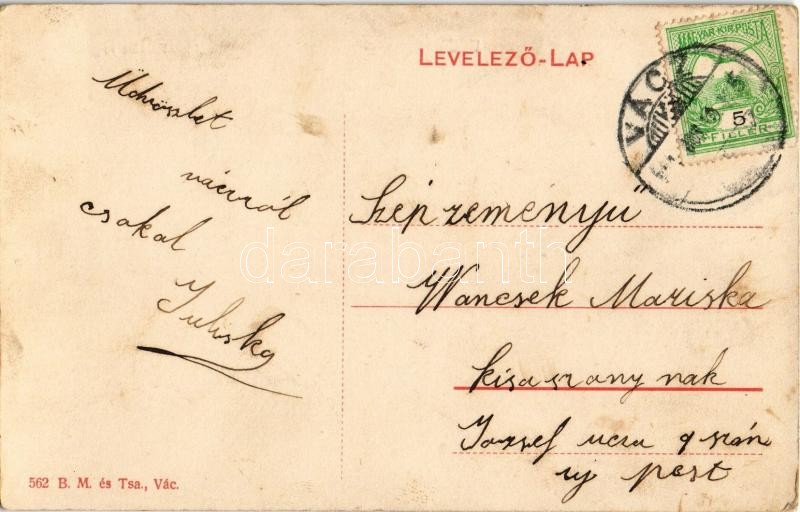 LEVELEZŐ-LAP
MAGYAR KIR. POSTA
5
FILLÉR
VÁCZ
Üdvözlet
váczról
csokol
Juliska
Szép zeményü"
Wancsek Mariska
kisaszony nak
Jozsef ucza 9 szán
uj pest
darabanth
562 B. M. és Tsa., Vác.